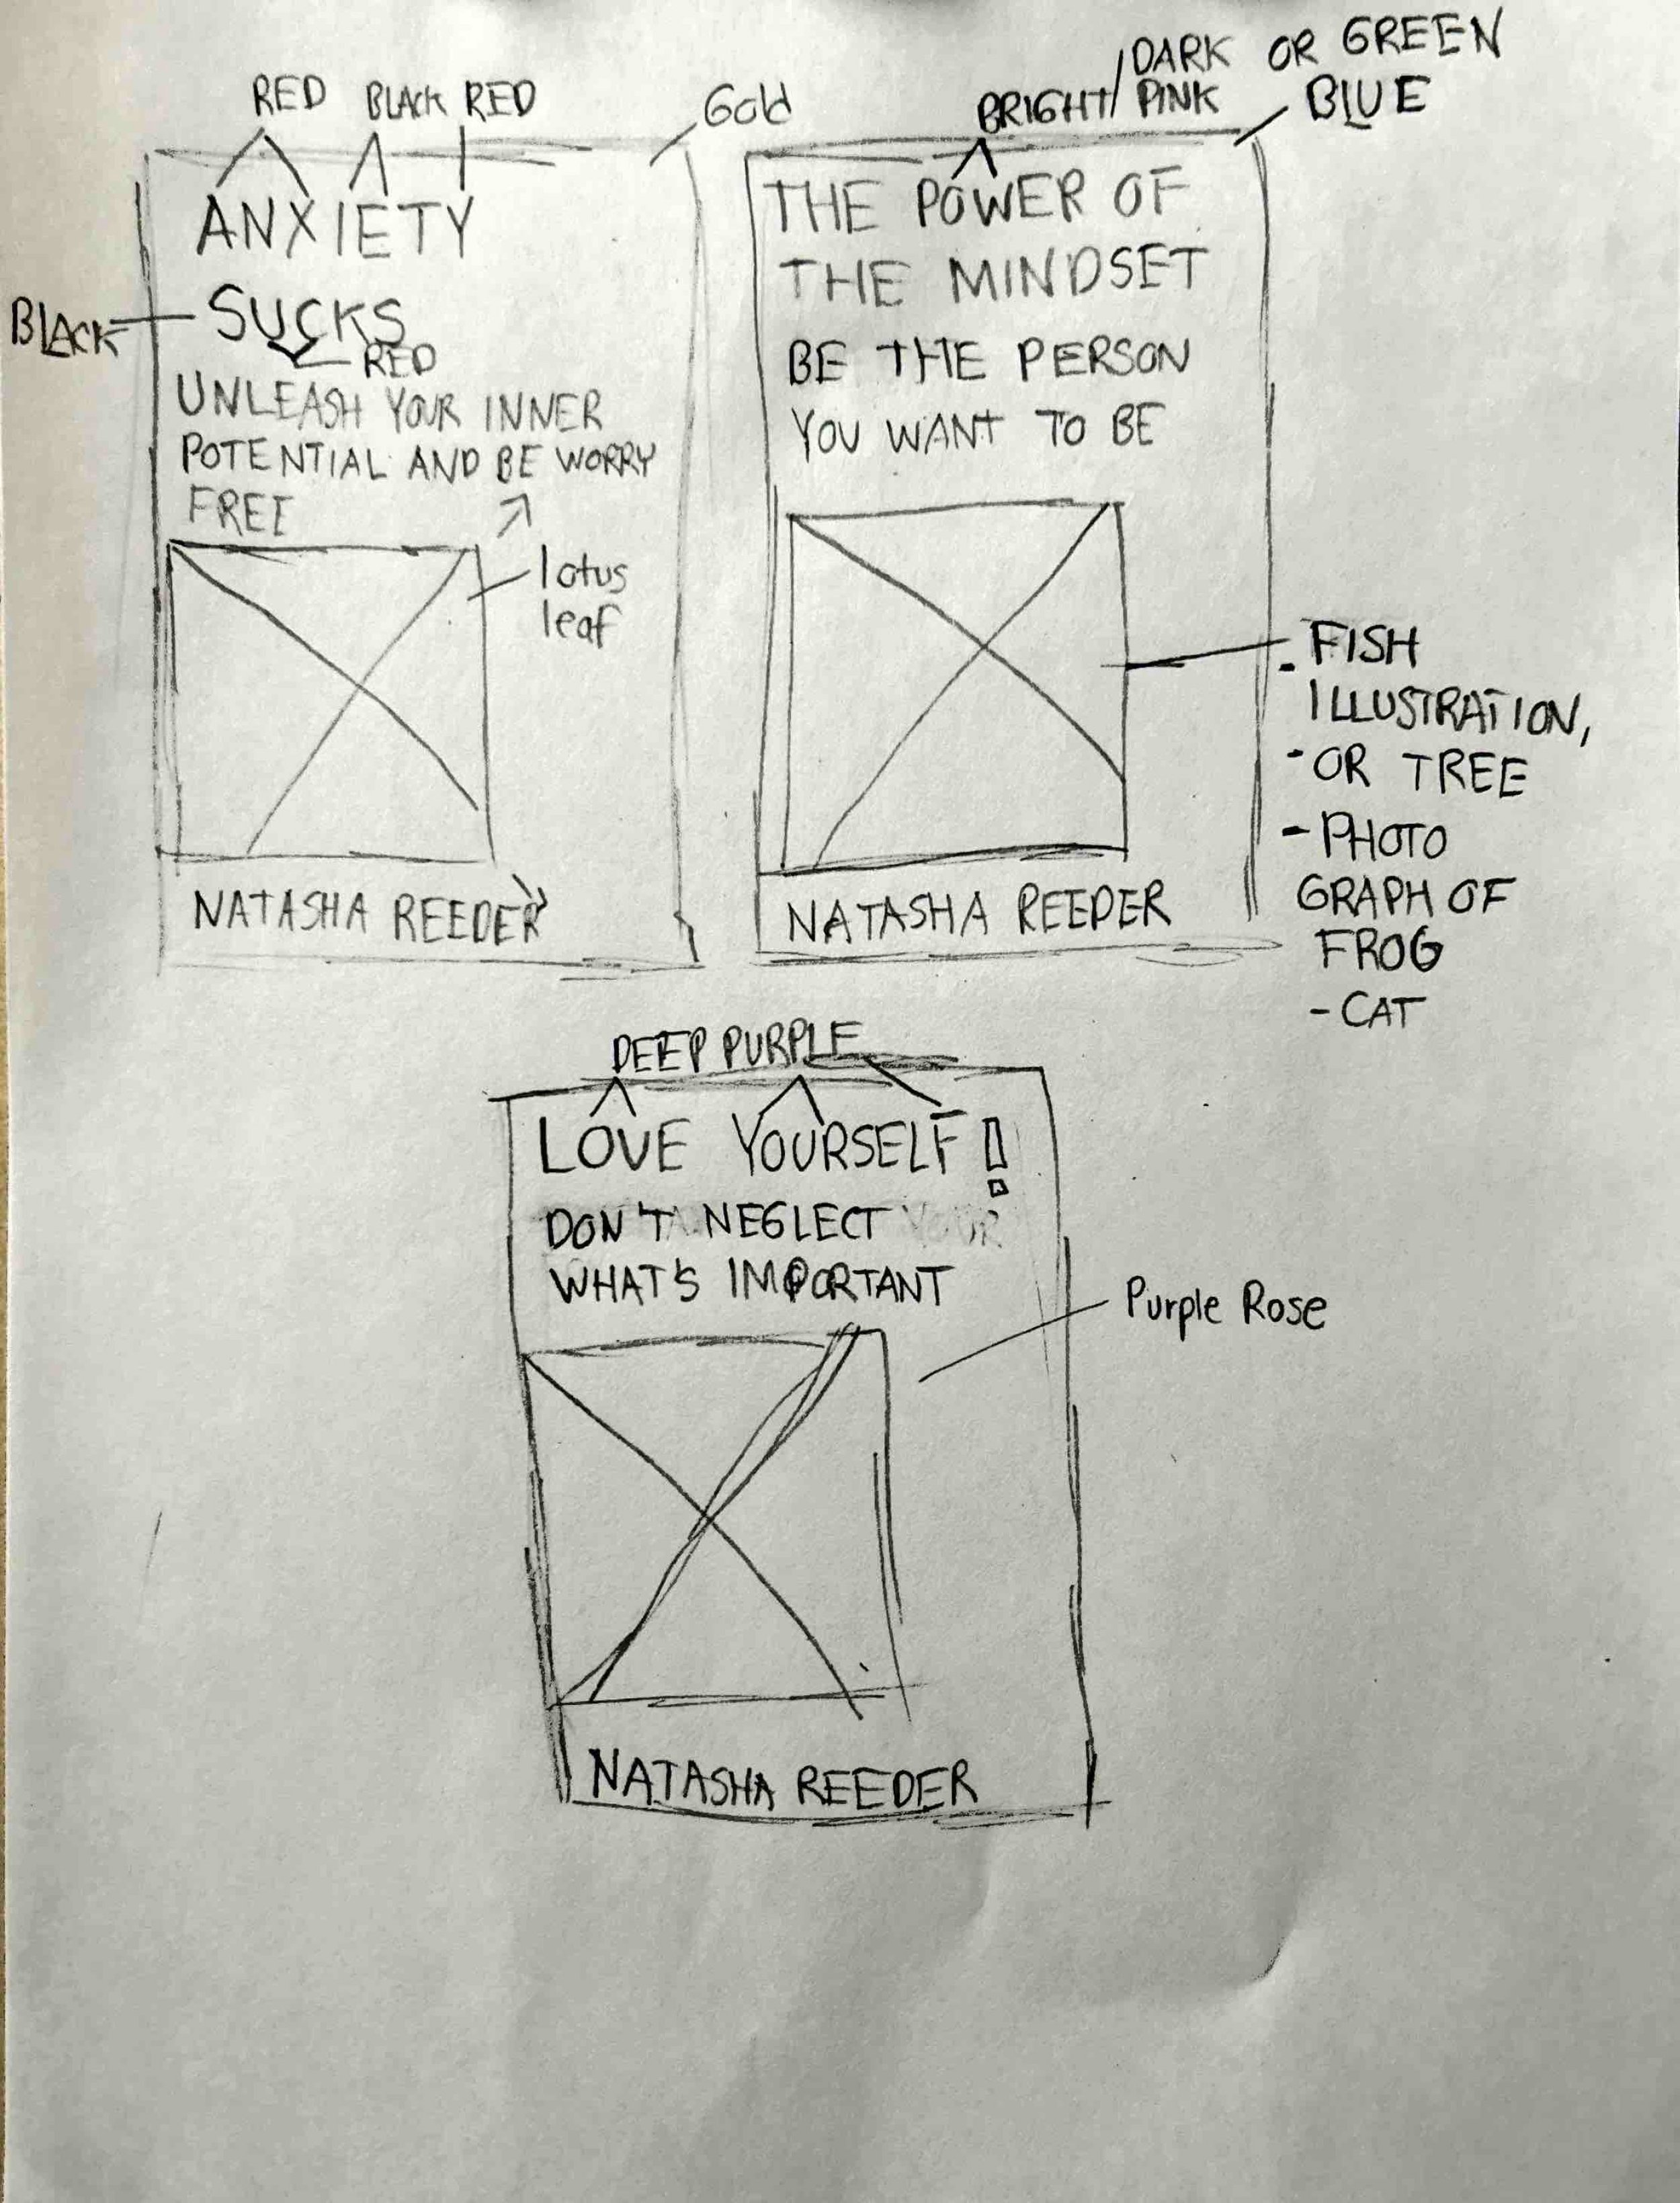 RED BLACK RED
Gold
ANXIETY
BLACK
SUCKS
RED
UNLEASH YOUR INNER
POTENTIAL AND BE WORRY
FREE
lotus
leaf
NATASHA REEDER
DARK OR GREEN
BRIGHT/ PINK BLUE
THE POWER OF
THE MINDSET
BE THE PERSON
YOU WANT TO BE
- FISH
ILLUSTRATION,
- OR TREE
- PHOTO
GRAPH OF
FROG
- CAT
NATASHA REEDER
DEEP PURPLE
LOVE YOURSELF!
DON'T NEGLECT YOUR
WHAT'S IMPORTANT
Purple Rose
NATASHA REEDER